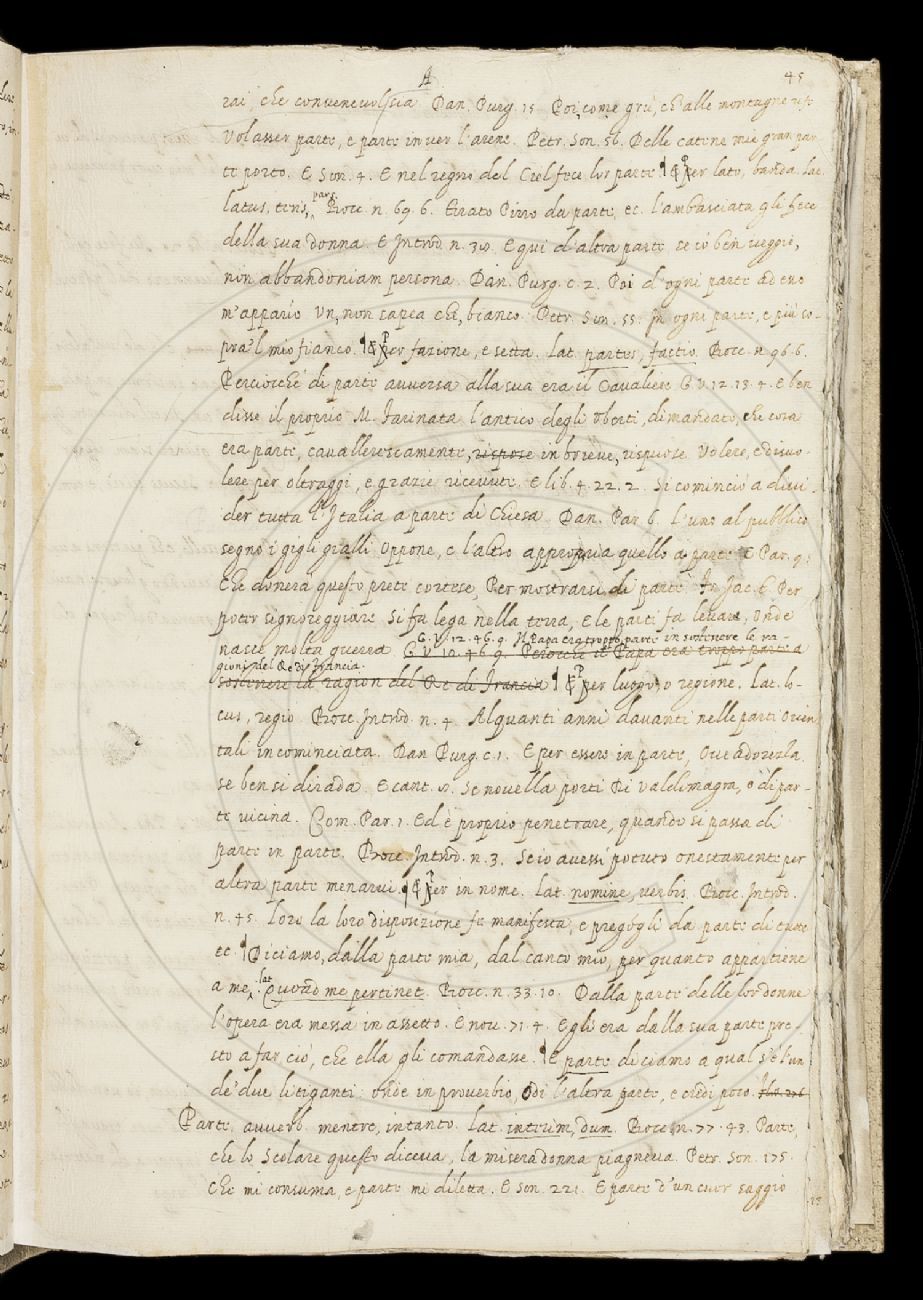 A
45
rai, che convenevol sia Dan. Purg. 15 Poi, come grù, ch'alle montagne rife
Volasser parte, e parte inver l'arene. Petr. Son. 56. Delle catene mie gran par
te porto. E Son. 4. E nel regno del Ciel fece lor parte ¶ & Per lato, banda. Lat.
latus, tens, pars. Bocc. n. 69. 6. tirato Pirro da parte, ec. l'ambasciata gli fece
della sua donna. E Introd. n. 39. E qui d'altra parte se io ben veggio,
non abbandoniam persona. Dan. Purg. c. 2. Poi d'ogni parte ad esso
m'appario Un, non sapea che, bianco. Petr. Son. 55. In ogni parte, e più so-
pra 'l mio fianco. ¶ & Per fazione, e setta. Lat. partes, factio. Bocc. n. 96. 6.
Perciocché di parte avversa alla sua era il Cavaliere G. V. 12. 13. 4. E ben
disse il proprio M. Farinata l'antico degli Uberti, dimandato, che cosa
era parte, cavallerescamente, rispose in brieve, rispuose Volere, e disvo-
lere per oltraggi, e grazie ricevute. E lib. 4. 22. 2. Si cominciò a divi-
der tutta l'Italia a parte di Chiesa Dan. Par. 6. L'uno al pubblico
segno i gigli gialli Oppone, e l'altro appropria quello a parte E Par. 9.
Che donerà questo prete cortese, Per mostrarsi di parte Fr. Jac. T. Per
poter signoreggiare Si fa lega nella terra, E le parti fa levare, Onde
nasce molta guerra. G. V. 12. 46. 9. Il Papa era troppo parte in sostenere le ra-
G. V. 12. 46. 9. Perocchè il Papa era troppo parte a
gioni del Re di Francia.
sostenere la ragion del Re di Francia ¶ & Per luogo, o regione. Lat. lo-
cus, regio Bocc. Introd. n. 4. Alquanti anni davanti nelle parti Orien
tali incominciata. Dan. Purg. c. 1. E per essere in parte, Ove adorezza
se ben si dirada. E cant. 8. Se novella parti Di Valdimagra, o di par-
te vicina. Com. Par. 1. Ed è proprio penetrare, quando si passa di
parte in parte. Bocc. Introd. n. 3. Se io avessi potuto onestamente per
altra parte menarvi. ¶ & Per in nome. Lat. nomine, verbis. Bocc. Introd.
n. 45. loro la loro disposizione fe manifesta, e pregógli da parte di tutte
ec. ¶ Diciamo, dalla parte mia, dal canto mio, per quanto appartiene
a me. lat. Quoad me pertinet. Bocc. n. 33. 10. Dalla parte delle lor donne
l'opera era messa in assetto. E nov. 71. 4. Egli era dalla sua parte pre-
sto a far ciò, che ella gli comandasse. ¶ E parte diciamo a qual s'è l'un
de' due litiganti: onde in proverbio, Odi l'altra parte, e credi poco.
Parte avverb. mentre, intanto. Lat. interim, dum. Bocc. n. 77. 43. Parte,
che lo Scolare questo diceva, la misera donna piagneva. Petr. Son. 175.
Che mi consuma, e parte mi diletta. E Son. 221. E parte d'un cuor saggio